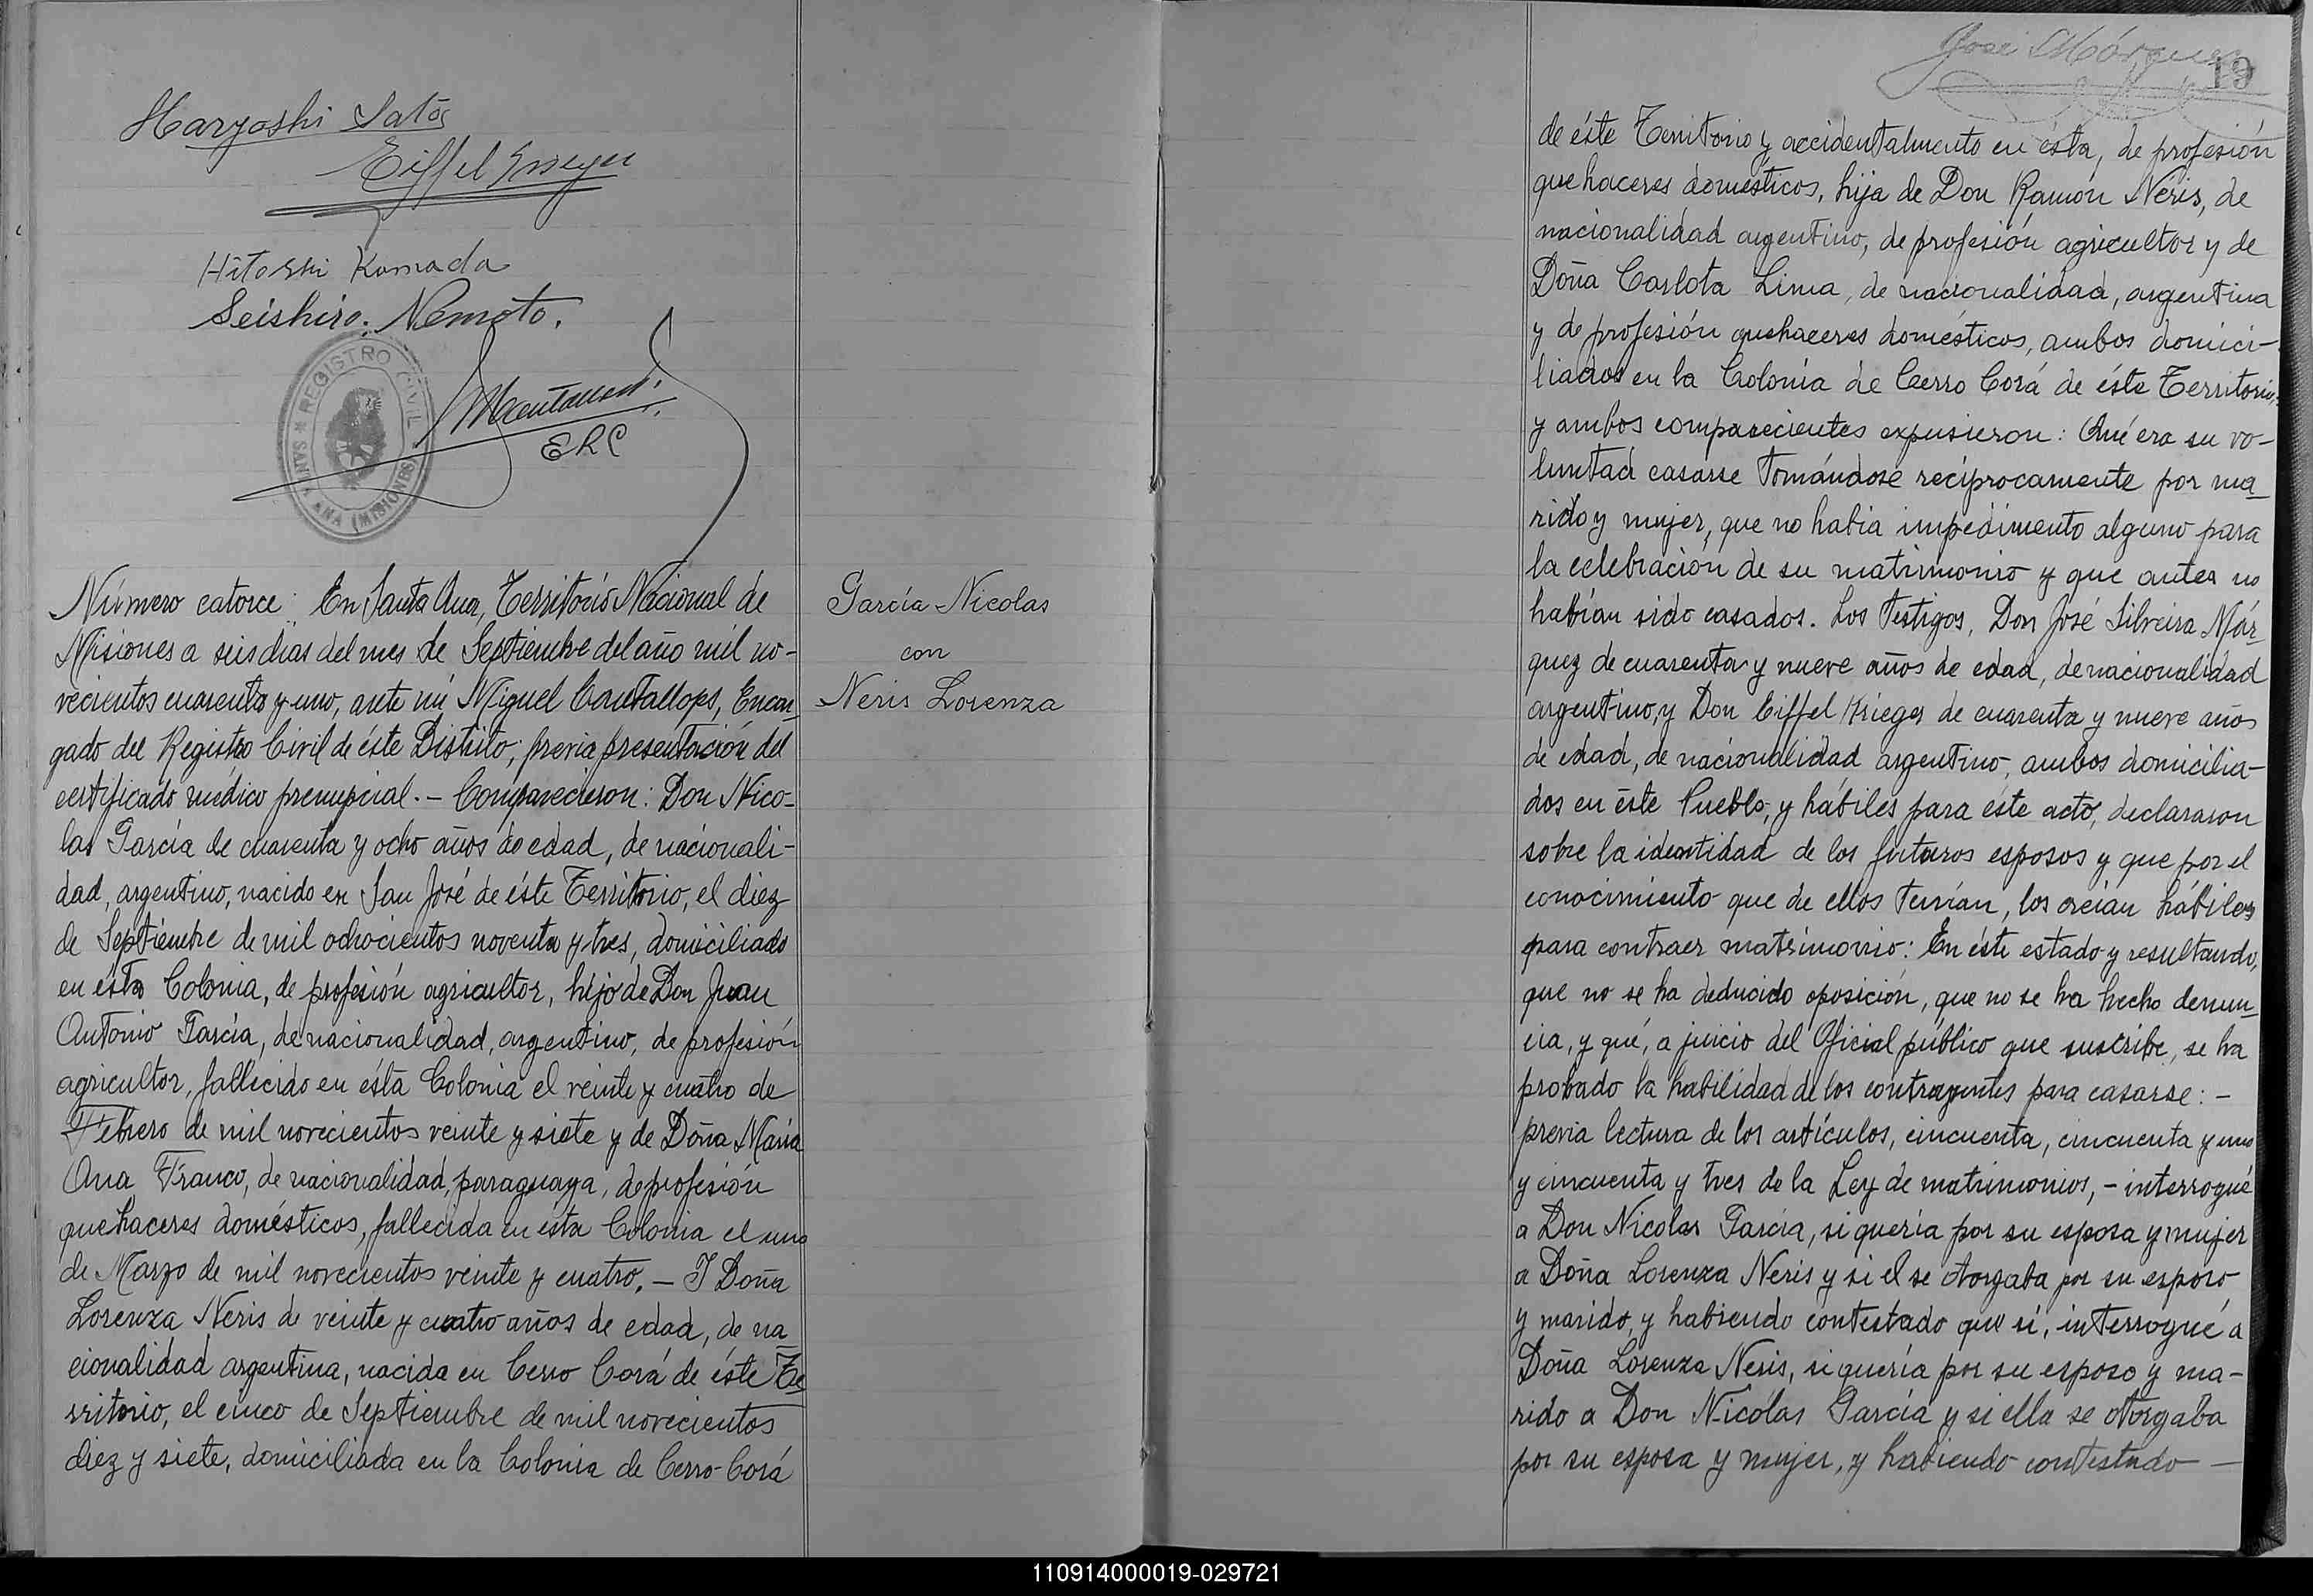 Haryoshi Sato
Eiffel
Hitoshi Kamada
Seishiro. Nemoto.
REGISTRO CIVIL
SANTA ANA (MISIONES)
ERC
Número catorce: En Santa Ana, Territorio Nacional de
Misiones a seis dias del mes de Septiembre del año mil no-
vecientos cuarenta y uno, ante mi Miguel Cantallops, Encar-
gado del Registro Civil de éste Distrito; previa presentación del
certificado médico prenupcial. - Comparecieron: Don Nico-
las García de cuarenta y ocho años de edad, de nacionali-
dad, argentino, nacido en San José de éste Territorio, el diez
de Septiembre de mil ochocientos noventa y tres, domiciliado
en ésta Colonia, de profesión agricultor, hijo de Don Juan
Antonio García, de nacionalidad, argentino, de profesión
agricultor, fallecido en ésta Colonia el veinte y cuatro de
Febrero de mil novecientos veinte y siete y de Doña María
Ana Franco, de nacionalidad, paraguaya, de profesión
quehaceres domésticos, fallecida en esta Colonia el uno
de Marzo de mil novecientos veinte y cuatro. - I Doña
Lorenza Neris de veinte y cuatro años de edad, de na
cionalidad argentina, nacida en Cerro Corá de éste Te
rritorio, el cinco de Septiembre de mil novecientos
diez y siete, domiciliada en la Colonia de Cerro-Corá
García Nicolas
con
Neris Lorenza
José Márquez
19
de éste Territorio y accidentalmente en ésta, de profesión
quehaceres domésticos, hija de Don Ramón Neris, de
nacionalidad argentino, de profesión agricultor y de
Doña Carlota Lima, de nacionalidad, argentina
y de profesión quehaceres domésticos, ambos domici-
liados en la Colonia de Cerro Corá de éste Territorio,
y ambos comparecientes expusieron: Qué era su vo-
luntad casarse tomándose recíprocamente por ma
rido y mujer, que no habia impedimento alguno para
la celebración de su matrimonio y que antes no
habían sido casados. Los testigos, Don José Silveira Már
quez de cuarenta y nueve años de edad, de nacionalidad
argentino, y Don Eiffel Krieger de cuarenta y nueve años
de edad, de nacionalidad argentino, ambos domicilia-
dos en éste Pueblo, y hábiles para éste acto, declararon
sobre la identidad de los futuros esposos y que por el
conocimiento que de ellos tenían, los creían hábiles
para contraer matrimonio: En éste estado y resultando,
que no se ha deducido oposición, que no se ha hecho denun
cia, y qué, a juicio del Oficial público que suscribe, se ha
probado la habilidad de los contrayentes para casarse: -
previa lectura de los artículos, cincuenta, cincuenta y uno
y cincuenta y tres de la Ley de matrimonios, - interrogué
a Don Nicolas García, si quería por su esposa y mujer
a Doña Lorenza Neris y si el se otorgaba por su esposo
y marido, y habiendo contestado que sí, interrogué a
Doña Lorenza Neris, si quería por su esposo y ma-
rido a Don Nicolás García y si ella se otorgaba
por su esposa y mujer, y habiendo contestado -
110914000019-029721